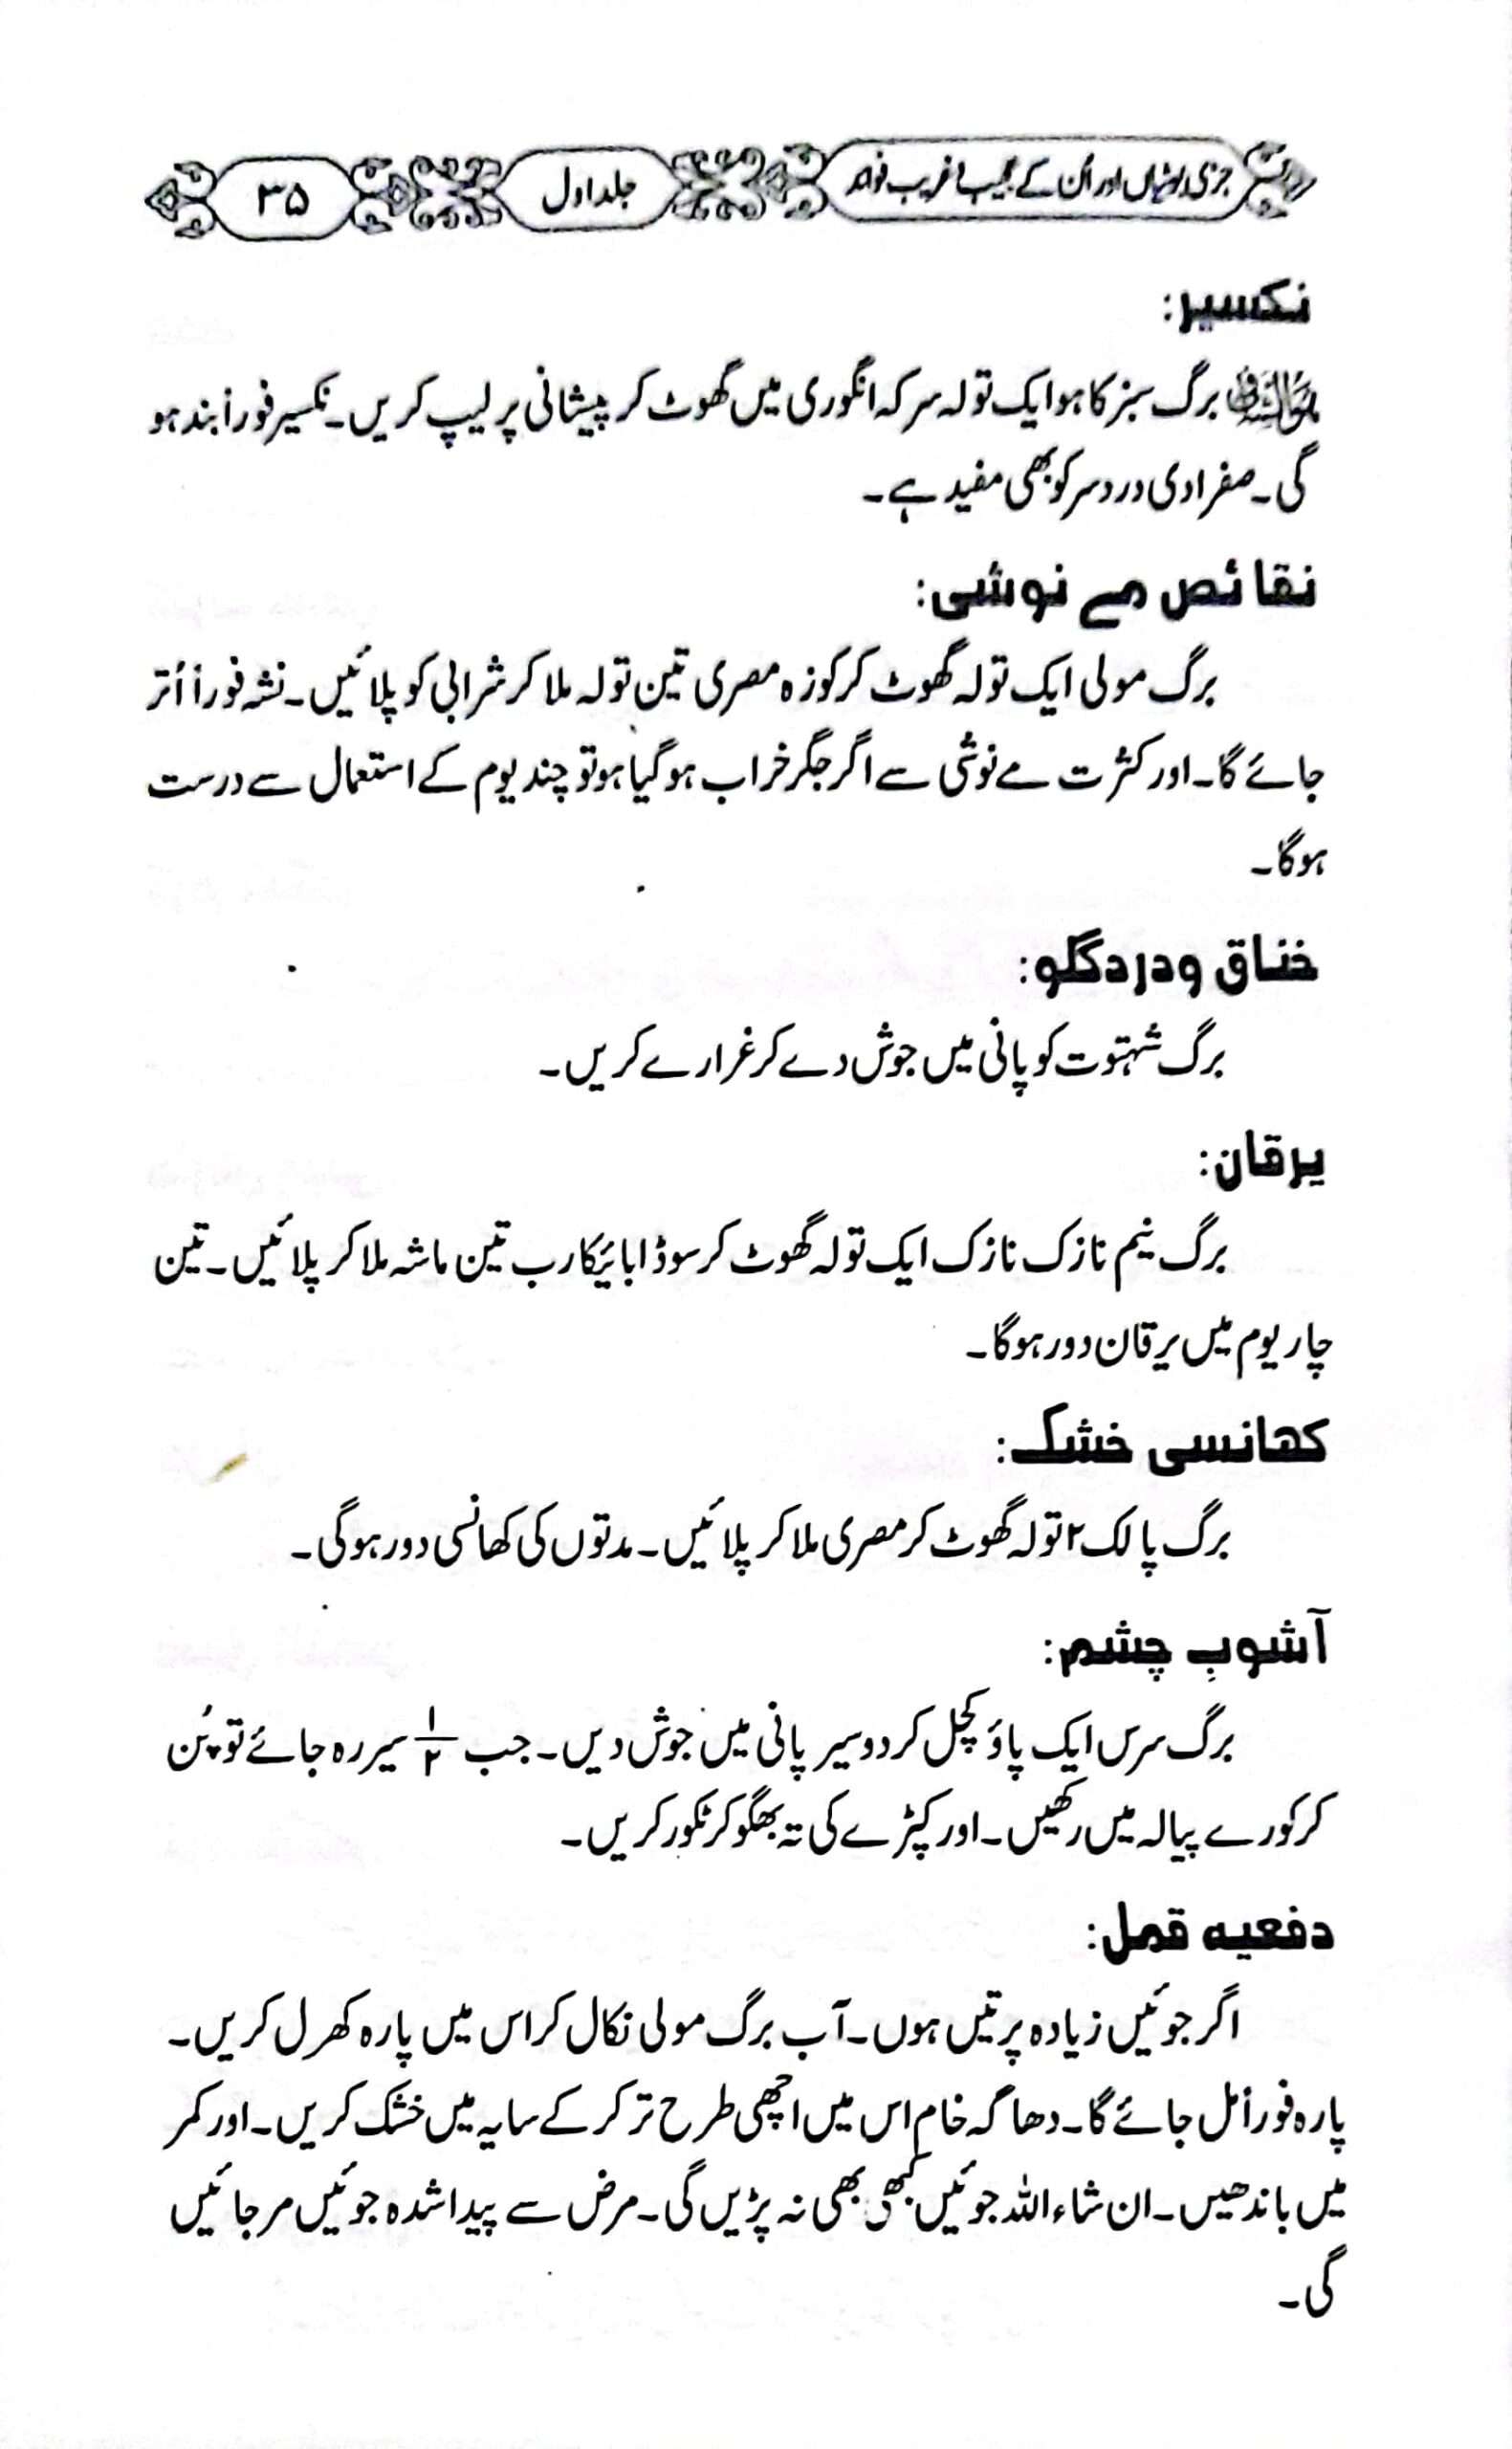 جڑی بوٹیاں اور اُن کے عجیب و غریب فوائد جلد اول ۳۵
نکسیر:
برگ سبز کاہو ایک تولہ سرکہ انگوری میں گھوٹ کر پیشانی پر لیپ کریں۔ نکسیر فوراً بند ہو
گی۔ صفراوی درد سر کو بھی مفید ہے۔
نقائص مے نوشی:
برگ مولی ایک تولہ گھوٹ کر کوزہ مصری تین تولہ ملا کر شرابی کو پلائیں۔ نشہ فوراً اُتر
جائے گا۔ اور کثرت مے نوشی سے اگر جگر خراب ہو گیا ہو تو چند یوم کے استعمال سے درست
ہوگا۔
خناق ودرد گلو:
برگ شہتوت کو پانی میں جوش دے کر غرارے کریں۔
یرقان:
برگ نیم نازک نازک ایک تولہ گھوٹ کر سوڈا بائیکارب تین ماشہ ملا کر پلائیں۔ تین
چار یوم میں یرقان دور ہوگا۔
کھانسی خشک:
برگ پالک ۲ تولہ گھوٹ کر مصری ملا کر پلائیں۔ مدتوں کی کھانسی دور ہوگی۔
آشوبِ چشم:
برگ سرس ایک پاؤ کچل کر دو سیر پانی میں جوش دیں۔ جب ۱/۲ سیر رہ جائے تو پُن
کر کورے پیالہ میں رکھیں۔ اور کپڑے کی تہ بھگو کر ٹکور کریں۔
دفعیہ قمل:
اگر جوئیں زیادہ پرتیں ہوں۔ آب برگ مولی نکال کر اس میں پارہ کھرل کریں۔
پارہ فوراً مل جائے گا۔ دھاگہ خام اس میں اچھی طرح تر کر کے سایہ میں خشک کریں۔ اور کمر
میں باندھیں۔ ان شاء اللہ جوئیں کبھی بھی نہ پڑیں گی۔ مرض سے پیدا شدہ جوئیں مر جائیں
گی۔